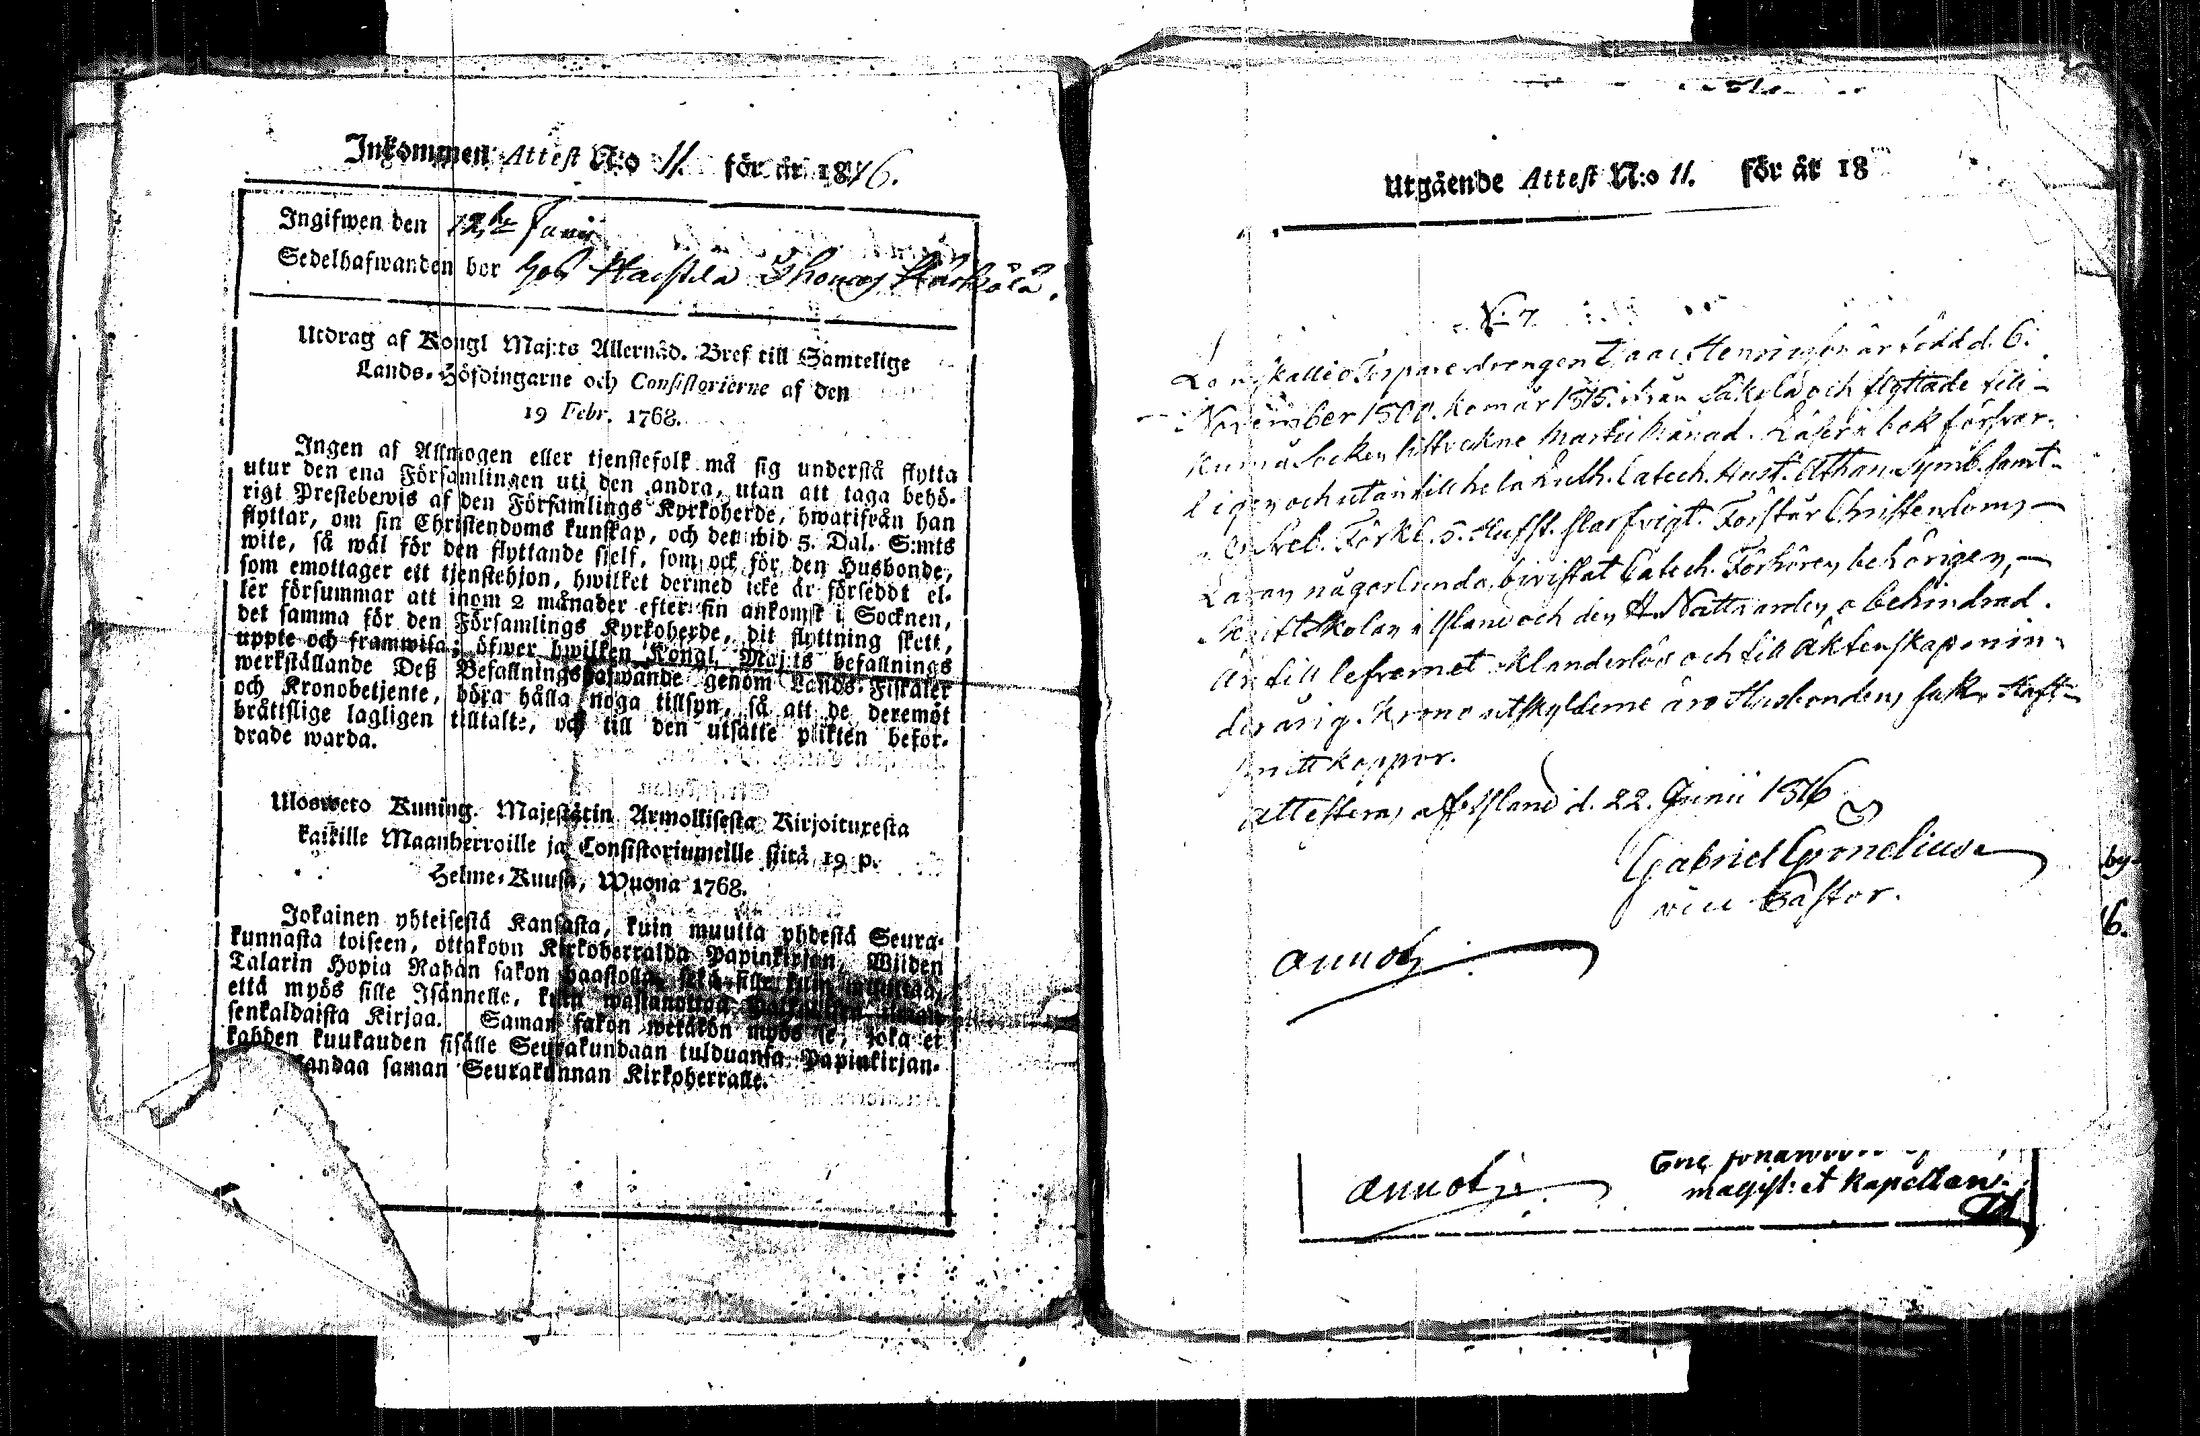 Inkommen Attest N:o 11. för år 1816.
Ingifwen den 12te Junii
Sedelhafwanden bor hos Thomas
Utdrag af Kongl Maj:ts Allernåd. Bref till Samtelige
Lands-Höfdingarne och Consistorierne af den
19 Febr. 1768.
Ingen af Allmogen eller tjenstefolk må sig understå flytta
utur den ena Församlingen uti den andra, utan att taga behö-
rigt Prestebewis af den Församlings Kyrkoherde, hwarifrån han
flyttar, om sin Christendoms kunskap, och det wid 5. Dal. S:mts
wite, så wäl för den flyttande sjelf, som ock för den Husbonde,
som emottager ett tjenstehjon, hwilket dermed icke är försedt el-
ler försummar att inom 2 månader efter sin ankomst i Socknen,
det samma för den Församlings Kyrkoherde, dit flyttning skett,
uppte och framwisa; öfwer hwilken Kongl. Maj:ts befallnings
werkställande Deß Befallningshafwande genom Lands-Fiskaler
och Kronobetjente, böra hålla noga tillsyn, så att de deremot
bråttslige lagligen tilltalte, och till den utsatte plikten befor-
drade warda.
Ulosweto Kuning. Majestätin Armollisesta Kirjoituxesta
kaikille Maanherroille ja Consistoriumeille siitä 19 p.
Helme-Kuusa, Wuona 1768.
Jokainen yhteisestä Kansasta, kuin muutta yhdestä Seura-
kunnasta toiseen, ottakoon Kirkoherralda Papinkirjan, Wiiden
Talarin Hopia Rahan sakon haastolla, sekä sille kuin muuttaa,
että myös sille Isännelle, kuin wastanottaa
senkaldaista Kirjaa. Saman sakon wetäkön myös se, joka ei
kahden kuukauden sisälle Seurakundaan tulduansa Papinkirjan-
andaa saman Seurakunnan Kirkoherralle.
Utgående Attest N:o 11. för år 18
N:o 7.
drengen är född d. 6.
November 1800. kom år 1815. ifrån Säkylä och flyttade till
Socken sistvekne Martii Månad. Läser i bok försvar-
ligen och utantill hela Luth. Catech. Hust. Athan. Symb. samt
Förkl. Förstår Christendoms
Läran någorlunda, bivistat Catech. Förhören behörigen,
Skriftskolan i och den H. Nattvarden, obehindrad.
Är till lefvernet oklanderlös och till äktenskap onin-
Krono utskylderne äro Husbondens sak. Haft
koppor.
Attesteras af d. 22. Junii 1816
Gabriel Cornelius
vice Pastor.
annot.
by-
16.
annot.
magist: et Kapellan.